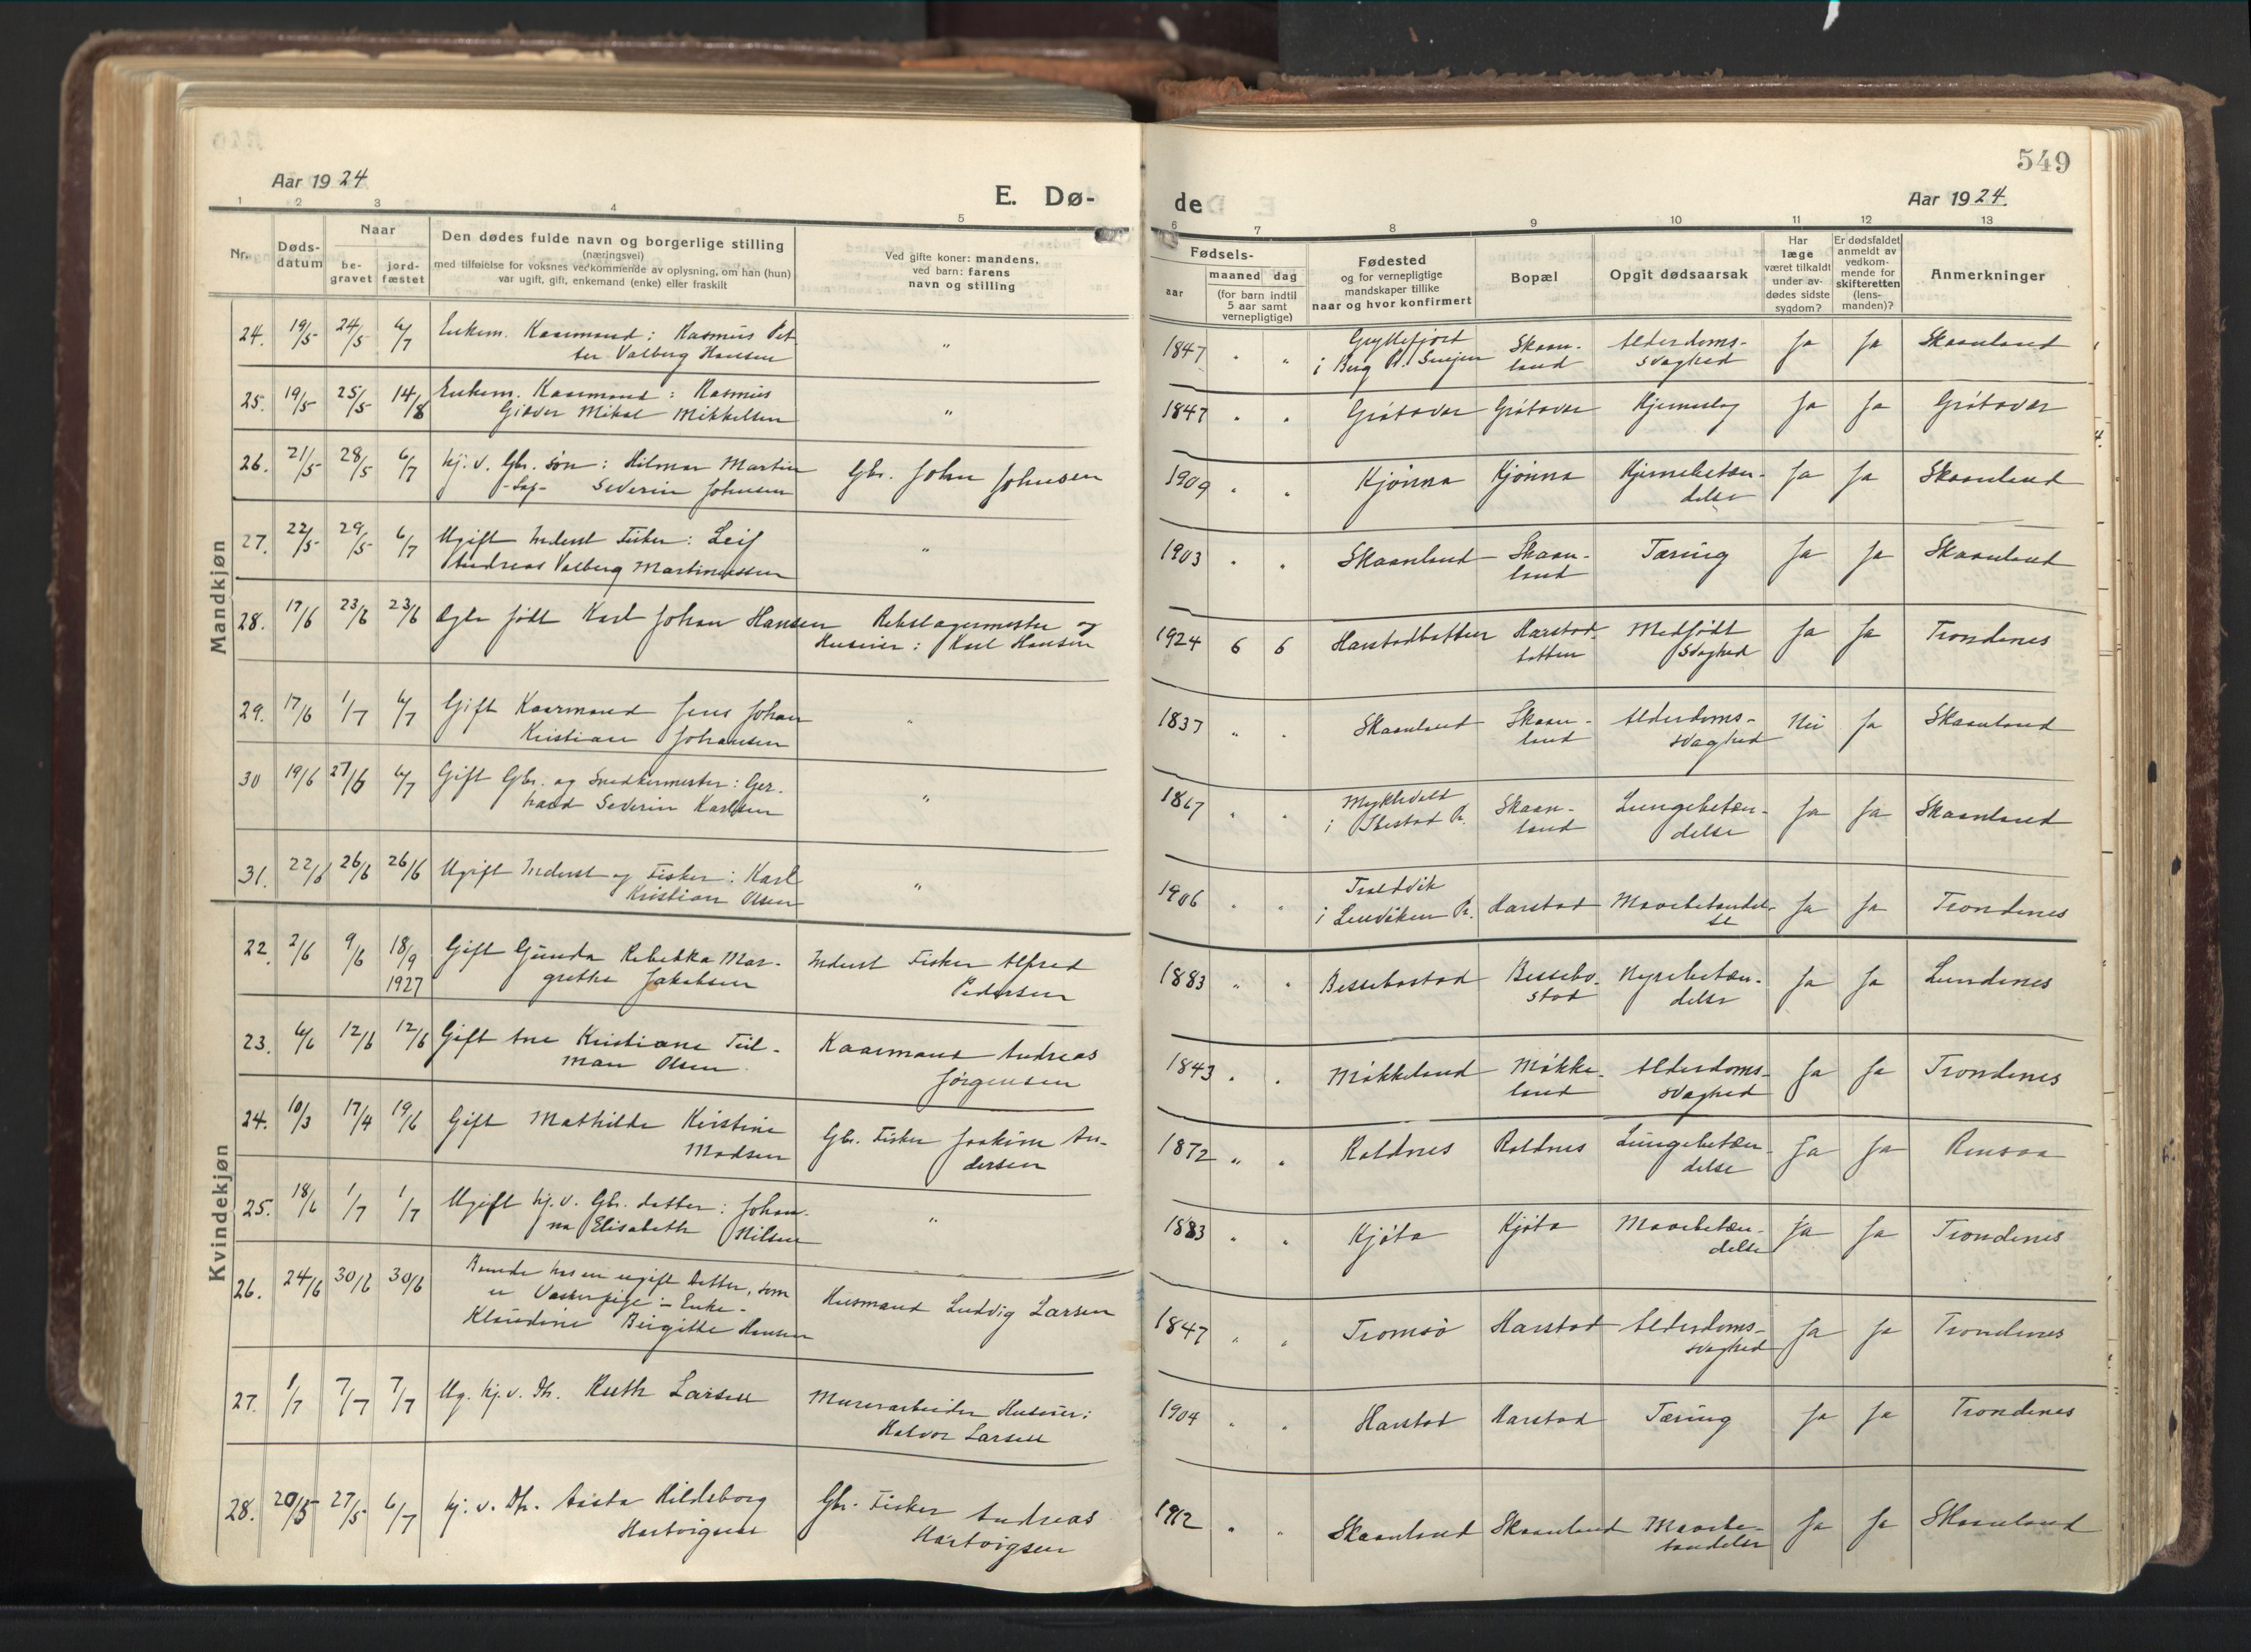 549
Aar 1924
E. Dø-
de
Aar 1924.
1 2 3 4 5 6 7 8 9 10 11 12 13
Nr.
Døds-
datum
Naar
be-
gravet
jord-
fæstet
Den dødes fulde navn og borgerlige stilling
(næringsvei)
med tilføielse for voksnes vedkommende av oplysning, om han (hun)
var ugift, gift, enkemand (enke) eller fraskilt
Ved gifte koner: mandens,
ved barn: farens
navn og stilling
Fødsels-
aar
maaned dag
(for barn indtil
5 aar samt
vernepligtige)
Fødested
og for vernepligtige
mandskaper tillike
naar og hvor konfirmert
Bopæl
Opgit dødsaarsak
Har
læge
været tilkaldt
under av-
dødes sidste
sygdom?
Er dødsfaldet
anmeldt av
vedkom-
mende for
skifteretten
(lens-
manden)?
Anmerkninger
Mandkjøn
24. 19/5 24/5 6/7 Enkem. Kaarmand: Rasmus Pet-
ter Valberg Hansen
" 1847 " " Gryllefjord
i Berg P. Senjen
Skaan-
land
Alderdoms-
svaghed
Ja Ja Skaanland
25. 19/5 25/5 14/8 Enkem. Kaarmand: Rasmus
Giæver Mikal Mikkelsen
" 1847 " " Grøtavær Grøtavær Hjerneslag Ja Ja Grøtavær
26. 21/5 28/5 6/7 Hj. v. Gbr. søn: Hilmar Martin
Severin Johnsen
Gbr. John Johnsen
1909 " " Kjønna Kjønna Hjernebetæn-
delse
Ja Ja Skaanland
27. 22/5 29/5 6/7 Ugift Inderst Fisker: Leif
Andreas Valberg Martinussen
" 1903 " " Skaanland Skaan-
land
Tæring Ja Ja Skaanland
28. 17/6 23/6 23/6 Ægte født Karl Johan Hansen
Rebslagermester og
Huseier: Karl Hansen
1924 6 6 Harstadbotten Harstad-
botten
Medfødt
svaghed
Ja Ja Trondenes
29. 17/6 1/7 6/7 Gift Kaarmand Jens Johan
Kristian Johansen
" 1837 " " Skaanland Skaan-
land
Alderdoms-
svaghed
Nei Ja Skaanland
30 19/6 27/6 6/7 Gift Gbr. og Snedkermester: Ger-
hard Severin Karlsen
" 1867 " " Myklebolt
i Ibestad P.
Skaan-
land
Lungebetæn-
delse
Ja Ja Skaanland
31. 22/6 26/6 26/6 Ugift Inderst og Fisker: Karl
Kristian Olsen
" 1906 " "
i Lenviken P.
Harstad Mavebetændel-
se
Ja Ja Trondenes
Kvindekjøn
22. 2/6 9/6 18/9
1927
Gift Gunda Rebekka Mar-
grethe Jakobsen
Inderst Fisker Alfred
Pedersen
1883 " " Bessebostad Bessebo-
stad
Nyrebetæn-
delse
Ja Ja Lundenes
23. 6/6 12/6 12/6 Gift Ane Kristiane Tiil-
man Olsen
Kaarmand Andreas
Jørgensen
1843 " " Møkkeland Møkke-
land
Alderdoms-
svaghed
Ja Ja Trondenes
24. 10/3 17/4 19/6 Gift Mathilde Kristine
Madsen
Gbr. Fisker Joakim An-
dersen
1872 " " Raldnes Raldnes Lungebetæn-
delse
Ja Ja Rensaa
25. 18/6 1/7 1/7 Ugift hj. v. Gbr. datter: Johan-
na Elisabeth Nilsen
" 1883 " " Kjøta Kjøta Mavebetæn-
delse
Ja Ja Trondenes
26. 24/6 30/6 30/6 har en ugift Datter, som
er Vaskepige - Enke -
Klaudine Birgitte Hansen
Husmand Ludvig Larsen
1847 " " Tromsø Harstad Alderdoms-
svaghed
Ja Ja Trondenes
27. 1/7 7/7 7/7 Ug. hj. v. Dtr. Ruth Larsen
Murerarbeider Huseier:
Halvor Larsen
1904 " " Harstad Harstad Tæring Ja Ja Trondenes
28. 20/5 27/5 6/7 hj. v. Dtr. Aasta Hildeborg
Hartvigsen
Gbr. Fisker Andreas
Hartvigsen
1912 " " Skaanland Skaanland Mavebe-
tændelse
Ja Ja Skaanland